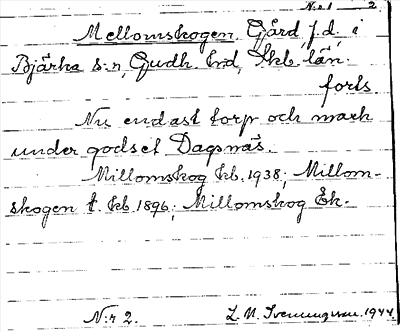 N:o 1 2.
Mellomskogen. Gård, f.d., i
Bjärka s:n, Gudh. hrd, Skb. län.
forts
Nu endast torp och mark
under godset Dagsnäs.
Millomskog kb. 1938; Millom-
skogen t. kb. 1896; Millomskog Ek.
N:r 2. L. N. Svenungsson. 1944.